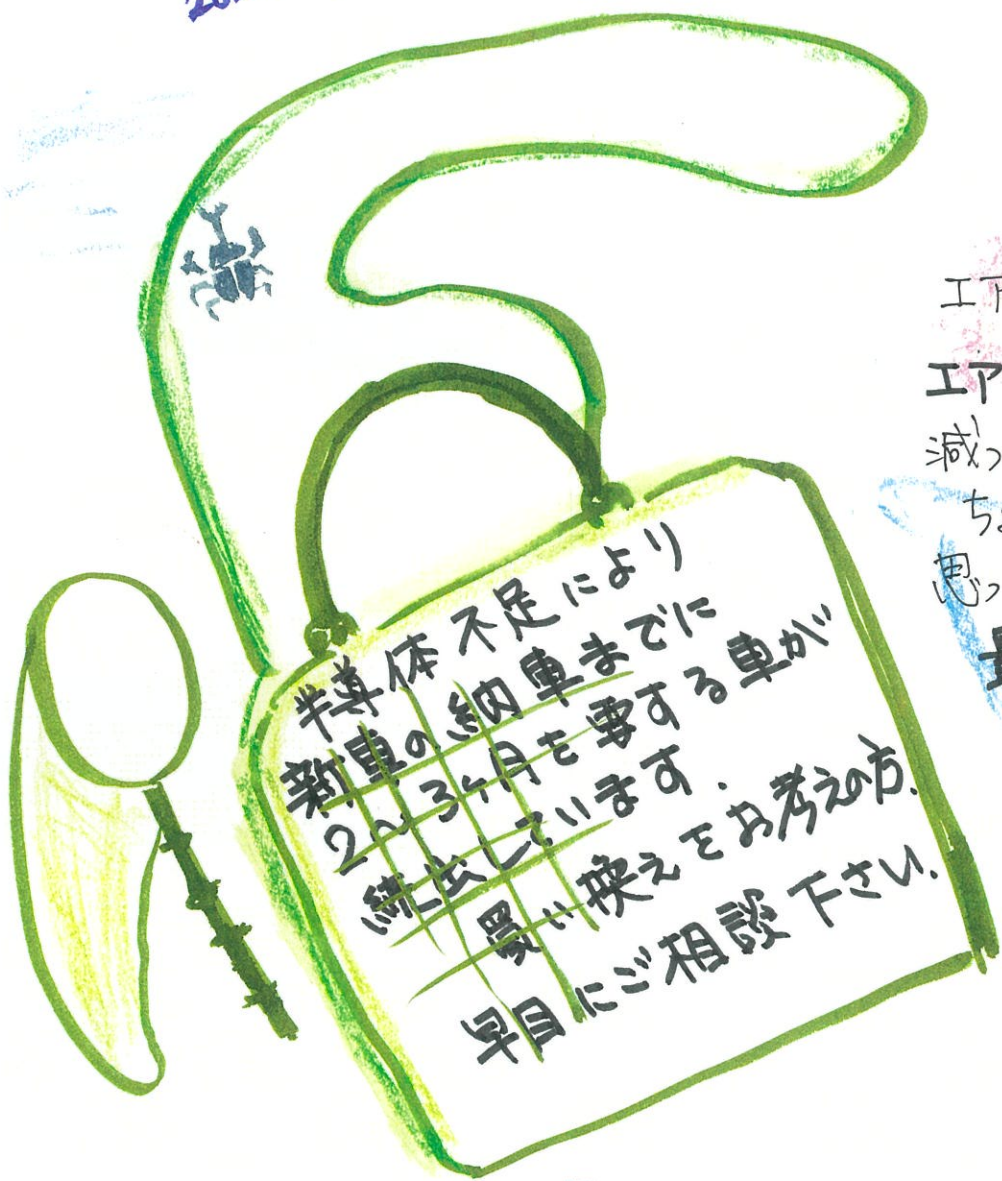 半導体不足により
新車の納車までに
2〜3ケ月を要する車が
続出しています.
買い換えをお考えの方.
早目にご相談下さい.
エア
エア
減っ
ち
思っ